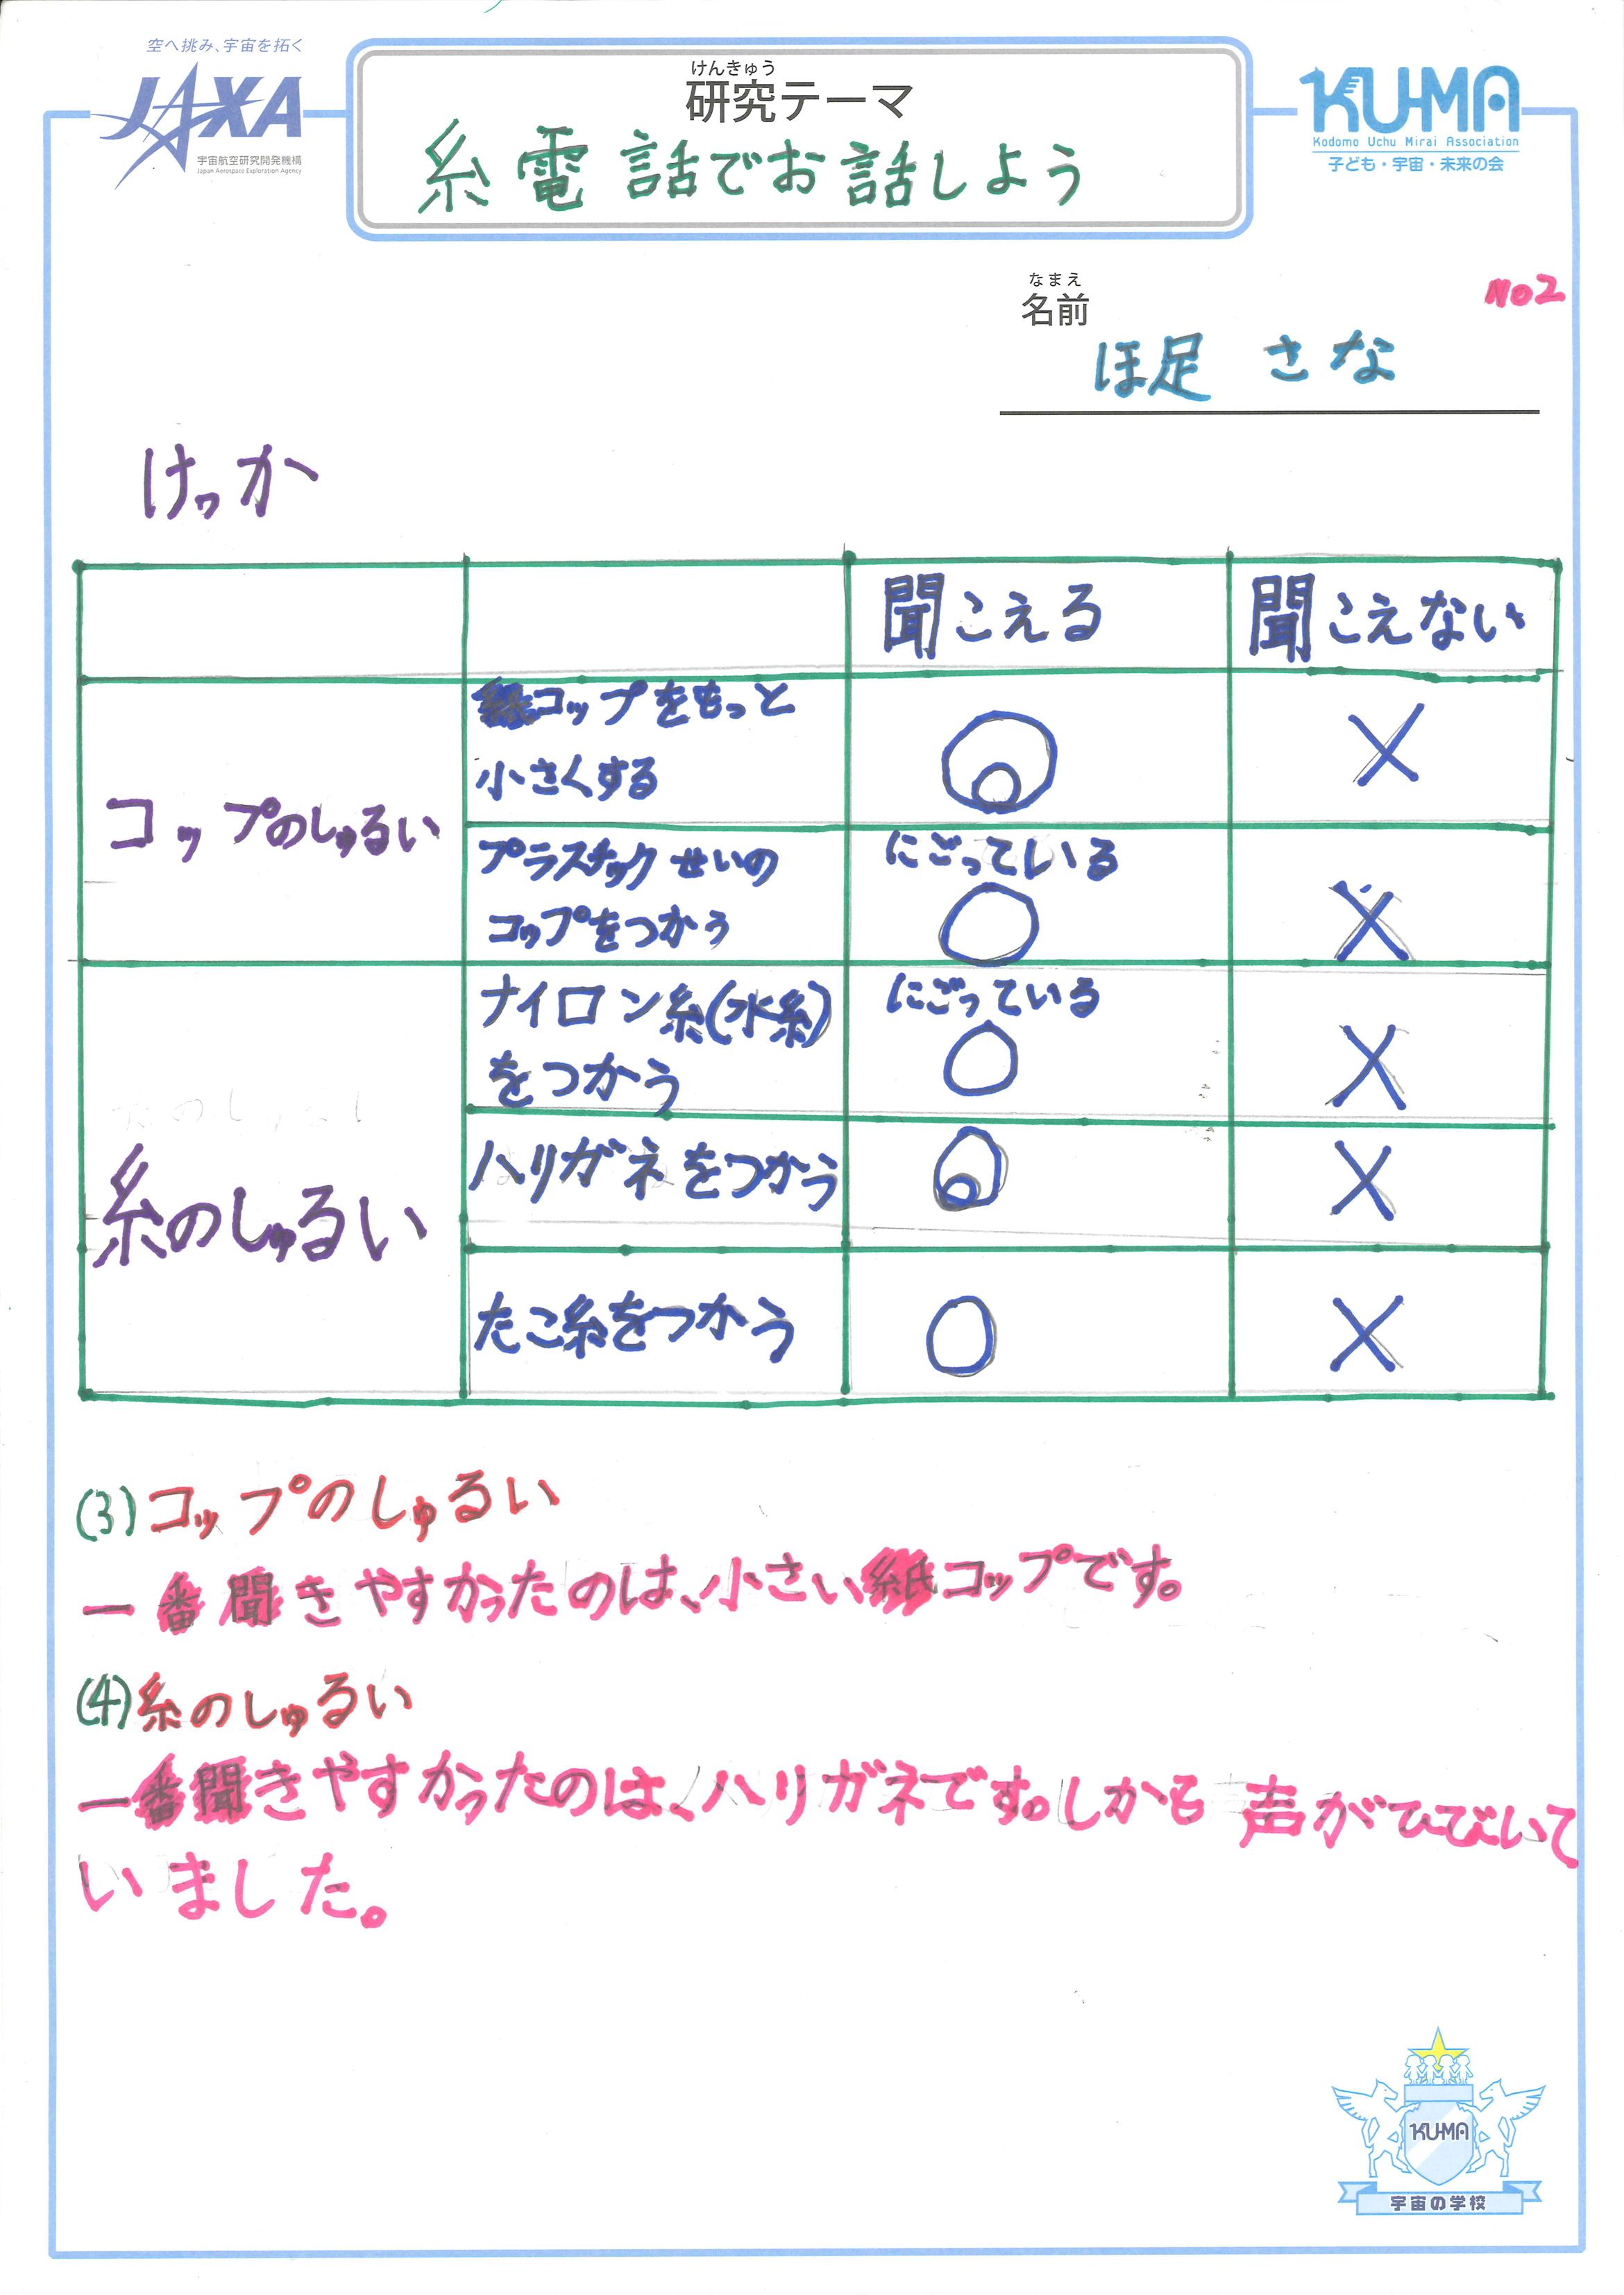 空へ挑み、宇宙を拓く
JAXA
宇宙航空研究開発機構
Japan Aerospace Exploration Agency
けんきゅう
研究テーマ
糸電話でお話しよう
KU-MA
Kodomo Uchu Mirai Association
子ども・宇宙・未来の会
No2
なまえ
名前
ほ足 さな
けっか
聞こえる 聞こえない
コップのしゅるい
紙コップをもっと
小さくする
◎ ×
プラスチックせいの
コップをつかう
にごっている
○ ×
糸のしゅるい
ナイロン糸(水糸)
をつかう
にごっている
○ ×
ハリガネをつかう ◎ ×
たこ糸をつかう ○ ×
(3)コップのしゅるい
一番聞きやすかったのは、小さい紙コップです。
(4)糸のしゅるい
一番聞きやすかったのは、ハリガネです。しかも声がひびいて
いました。
KU-MA
宇宙の学校